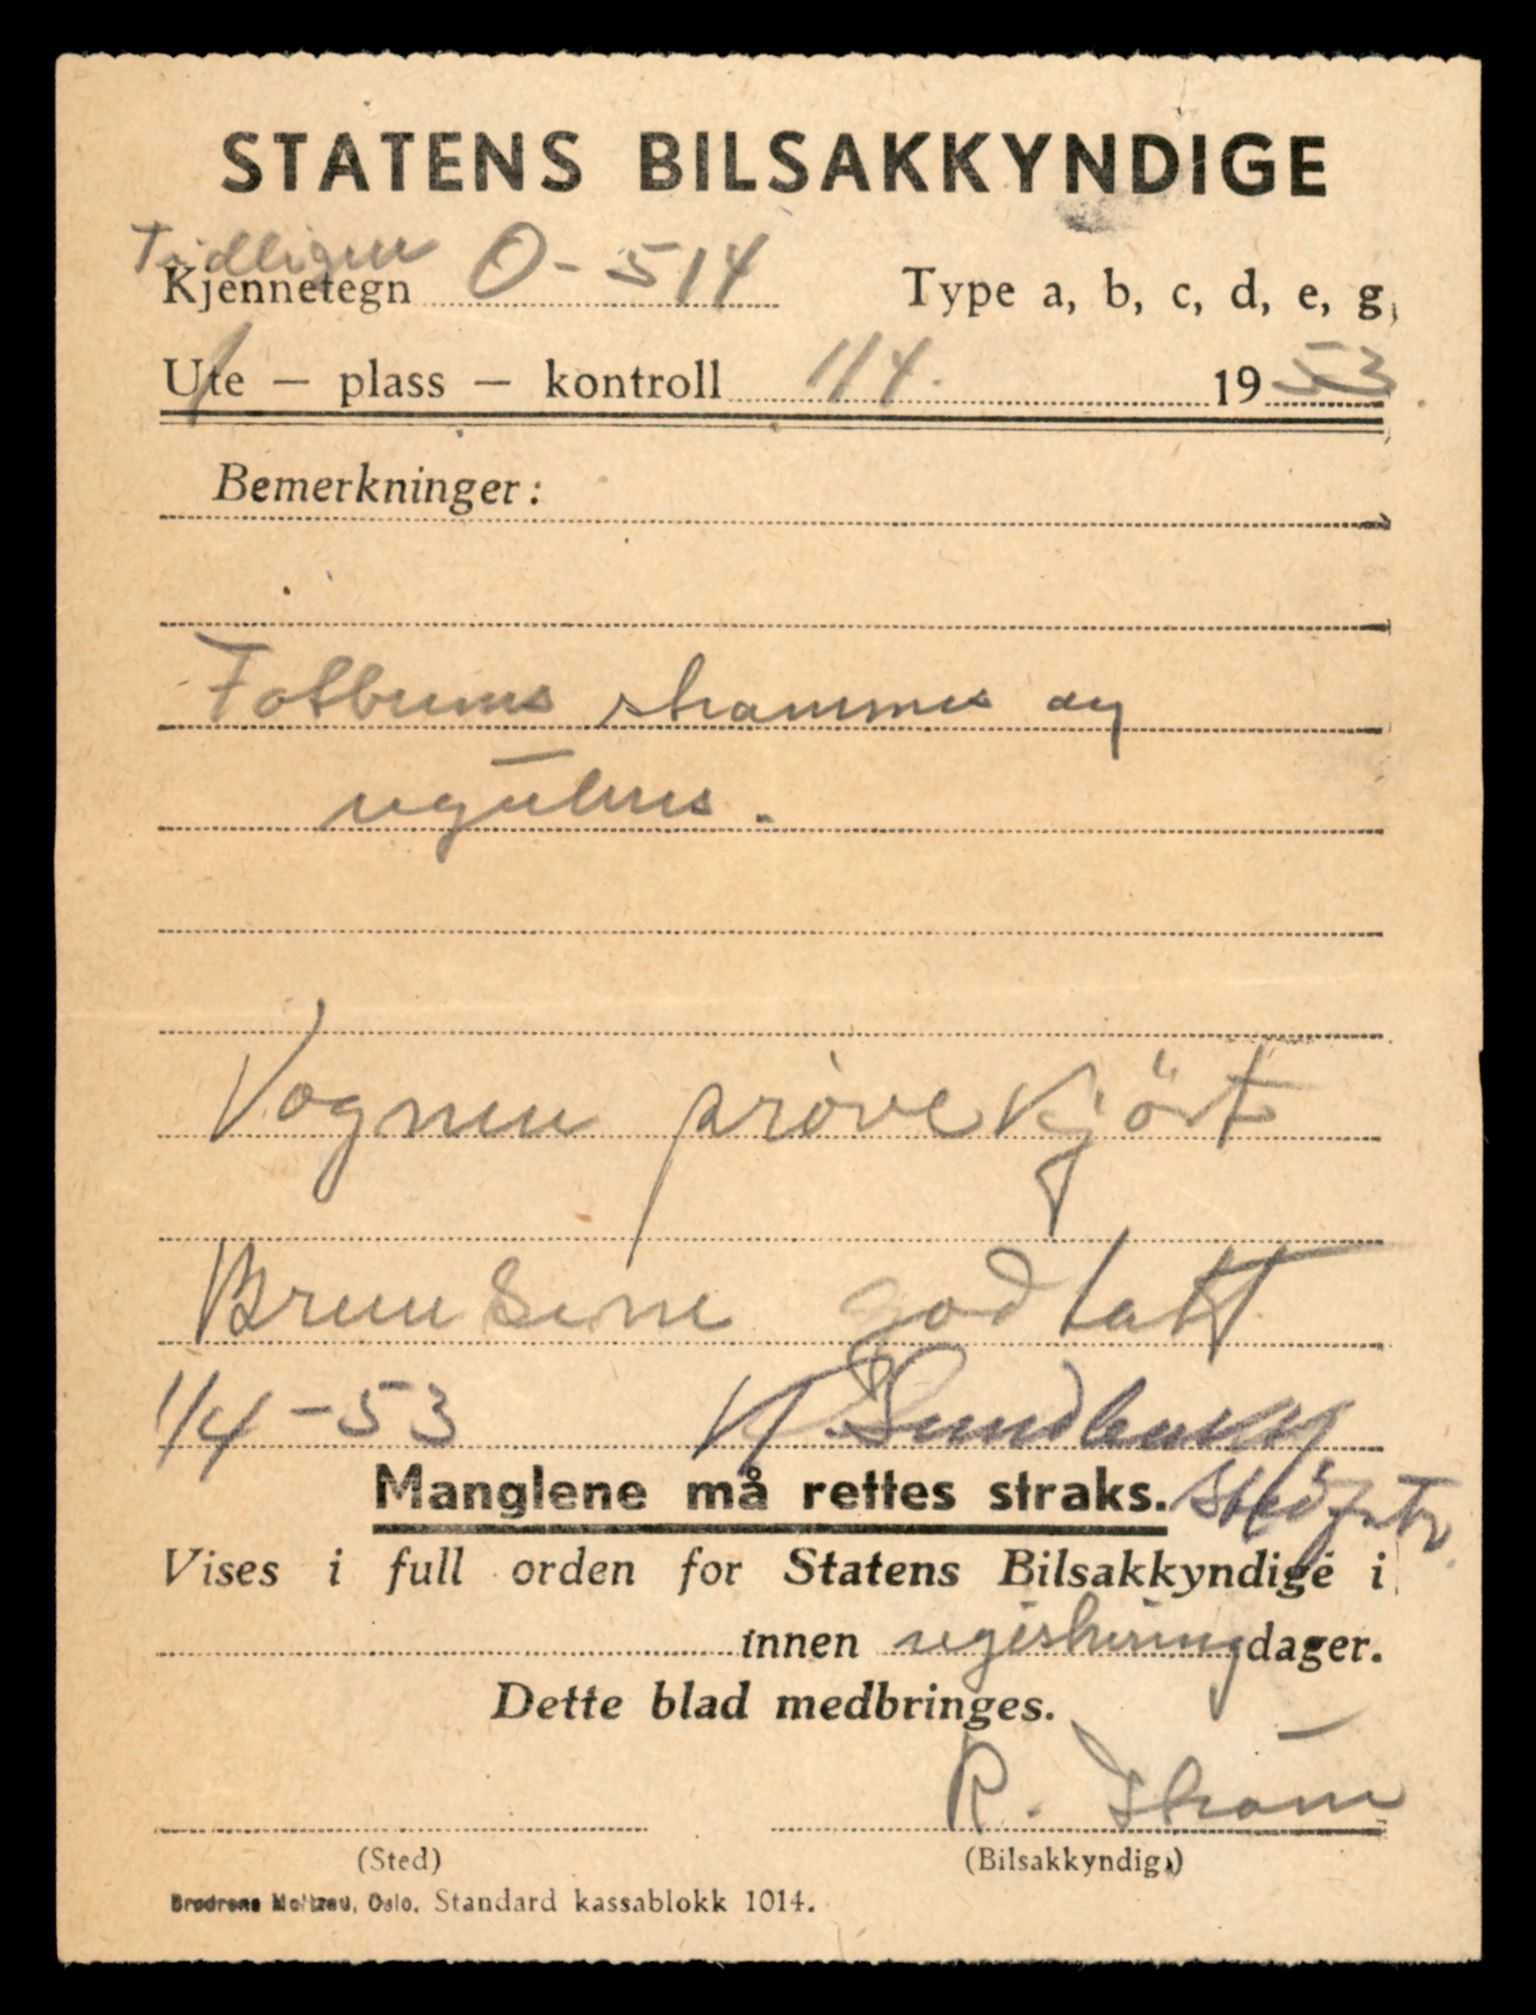 STATENS BILSAKKYNDIGE
Tidligere
Kjennetegn O-514 Type a, b, c, d, e, g,
Ute — plass — kontroll 1/4. 1953
Bemerkninger:
Fotbrems strammes og
reguleres.
Vognen prøvekjört
Bremsene godtatt
1/4-53 Sundberg
Manglene må rettes straks.
Vises i full orden for Statens Bilsakkyndige i
innen registrering dager.
Dette blad medbringes.
R. Strøm
(Sted) (Bilsakkyndig.)
Brødrene Moltzau, Oslo. Standard kassablokk 1014.